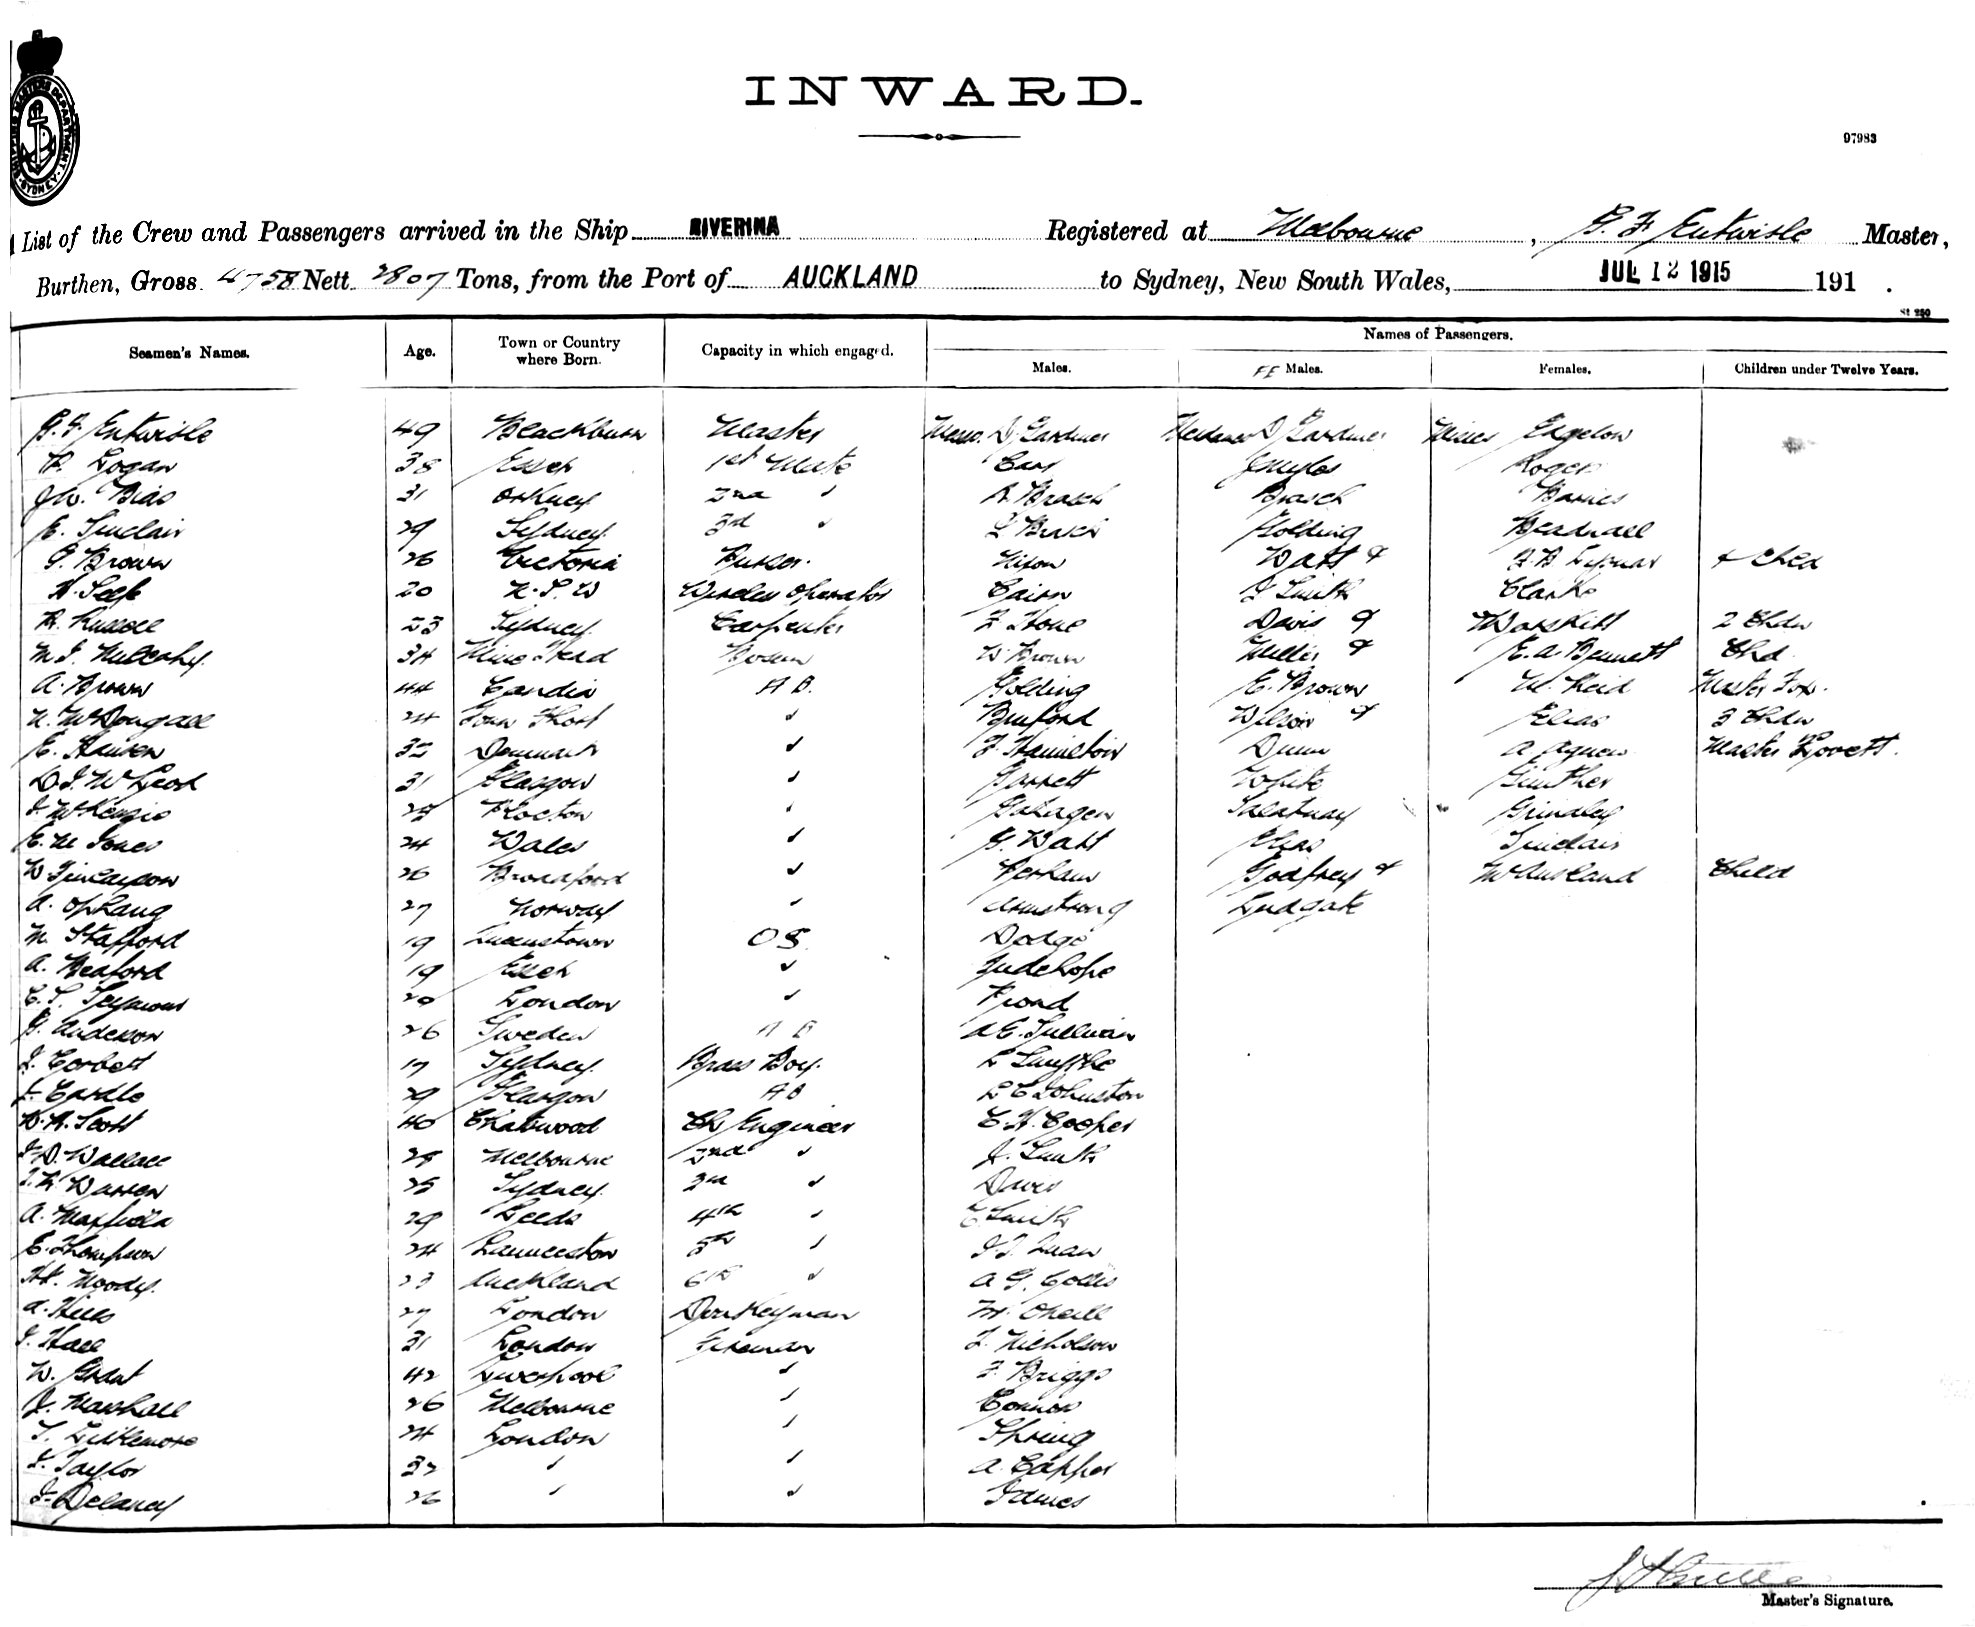 INWARD.
97983
List of the Crew and Passengers arrived in the Ship RIVERINA Registered at Melbourne, G. F. Entwisle Master,
Burthen, Gross 4758 Nett 2807 Tons, from the Port of AUCKLAND to Sydney, New South Wales, JUL 12 1915 191 .
St 250
Names of Passengers.
Seamen's Names. Age. Town or Country where Born. Capacity in which engaged. Males. FE Males. Females. Children under Twelve Years.
G. F. Entwisle 49 Blackburn Master Messrs. D. Gardner Mesdames D Gardner Misses Edgelow
Logan 38 Essex 1st Mate Carr Smyles Roger
J. W. Bias 31 Orkney 2nd " A. Brasch Brasch Barnes
E. Sinclair 29 Sydney 3rd " L Brasch Golding Beadnall
G. Brown 26 Victoria Purser. Nixon Watt & & Child
H. Self 20 N. S. W Wireless Operator Cairn J Smith Clarke
R. Russell 23 Sydney Carpenter F Stone Davis & 2 Chdn
M. J. Mulcahy 34 Mine Head Bosun W. Brown Miller & E. A. Bennett Chd
A. Brown 44 Candia A B. Golding E. Brown M. Reid Master Fox.
N. McDougall 24 " Binford Wilson & Elias 3 Chdn
E. Hansen 32 Denmark " F. Hamilton Dunn A Agnew Master Lovett.
D. J. McLeod 31 Glasgow " Garrett White Gunther
J. McKenzie " Gahagen Grindley
E. M Jones 24 Wales " G. Watt Elias Sinclair
W Finlayson 26 Broadford " Perham Godfrey & McAusland Child
A. Ophaug 27 Norway " Armstrong Ludgate
N. Stafford 19 Queenstown O S. Dodge
A. Beaford 19 Essex " Judehope
C. S. Seymour 20 London " Frond
G. Anderson 26 Sweden A B A E. Sullivan
J. Corbett 17 Sydney. Brass Boy. L Smythe
J. Cardle 29 Glasgow A B L C Johnston
W. H. Scott 40 Chatswood Ch Engineer C. H. Cooper
J. D. Wallace 29 Melbourne 2nd " J. Smith
J. H. Warren 25 Sydney. 3rd " Davis
A. Maxfield 29 Leeds 4th " E Smith
E. Thompson 24 Launceston 5th " J. J. Quan
Moody. 23 Auckland 6th " A G. Collis
A. Hills 27 London Donkeyman M. ONeill
J. Hall 31 London Fireman J. Nicholson
W. Grant 42 Liverpool " F Briggs
J. Marshall 26 Melbourne " Connor
T. Littlemore 24 London " Spring
J. Taylor 37 " " A. Capper
J. Delaney 26 " " James
Master's Signature.